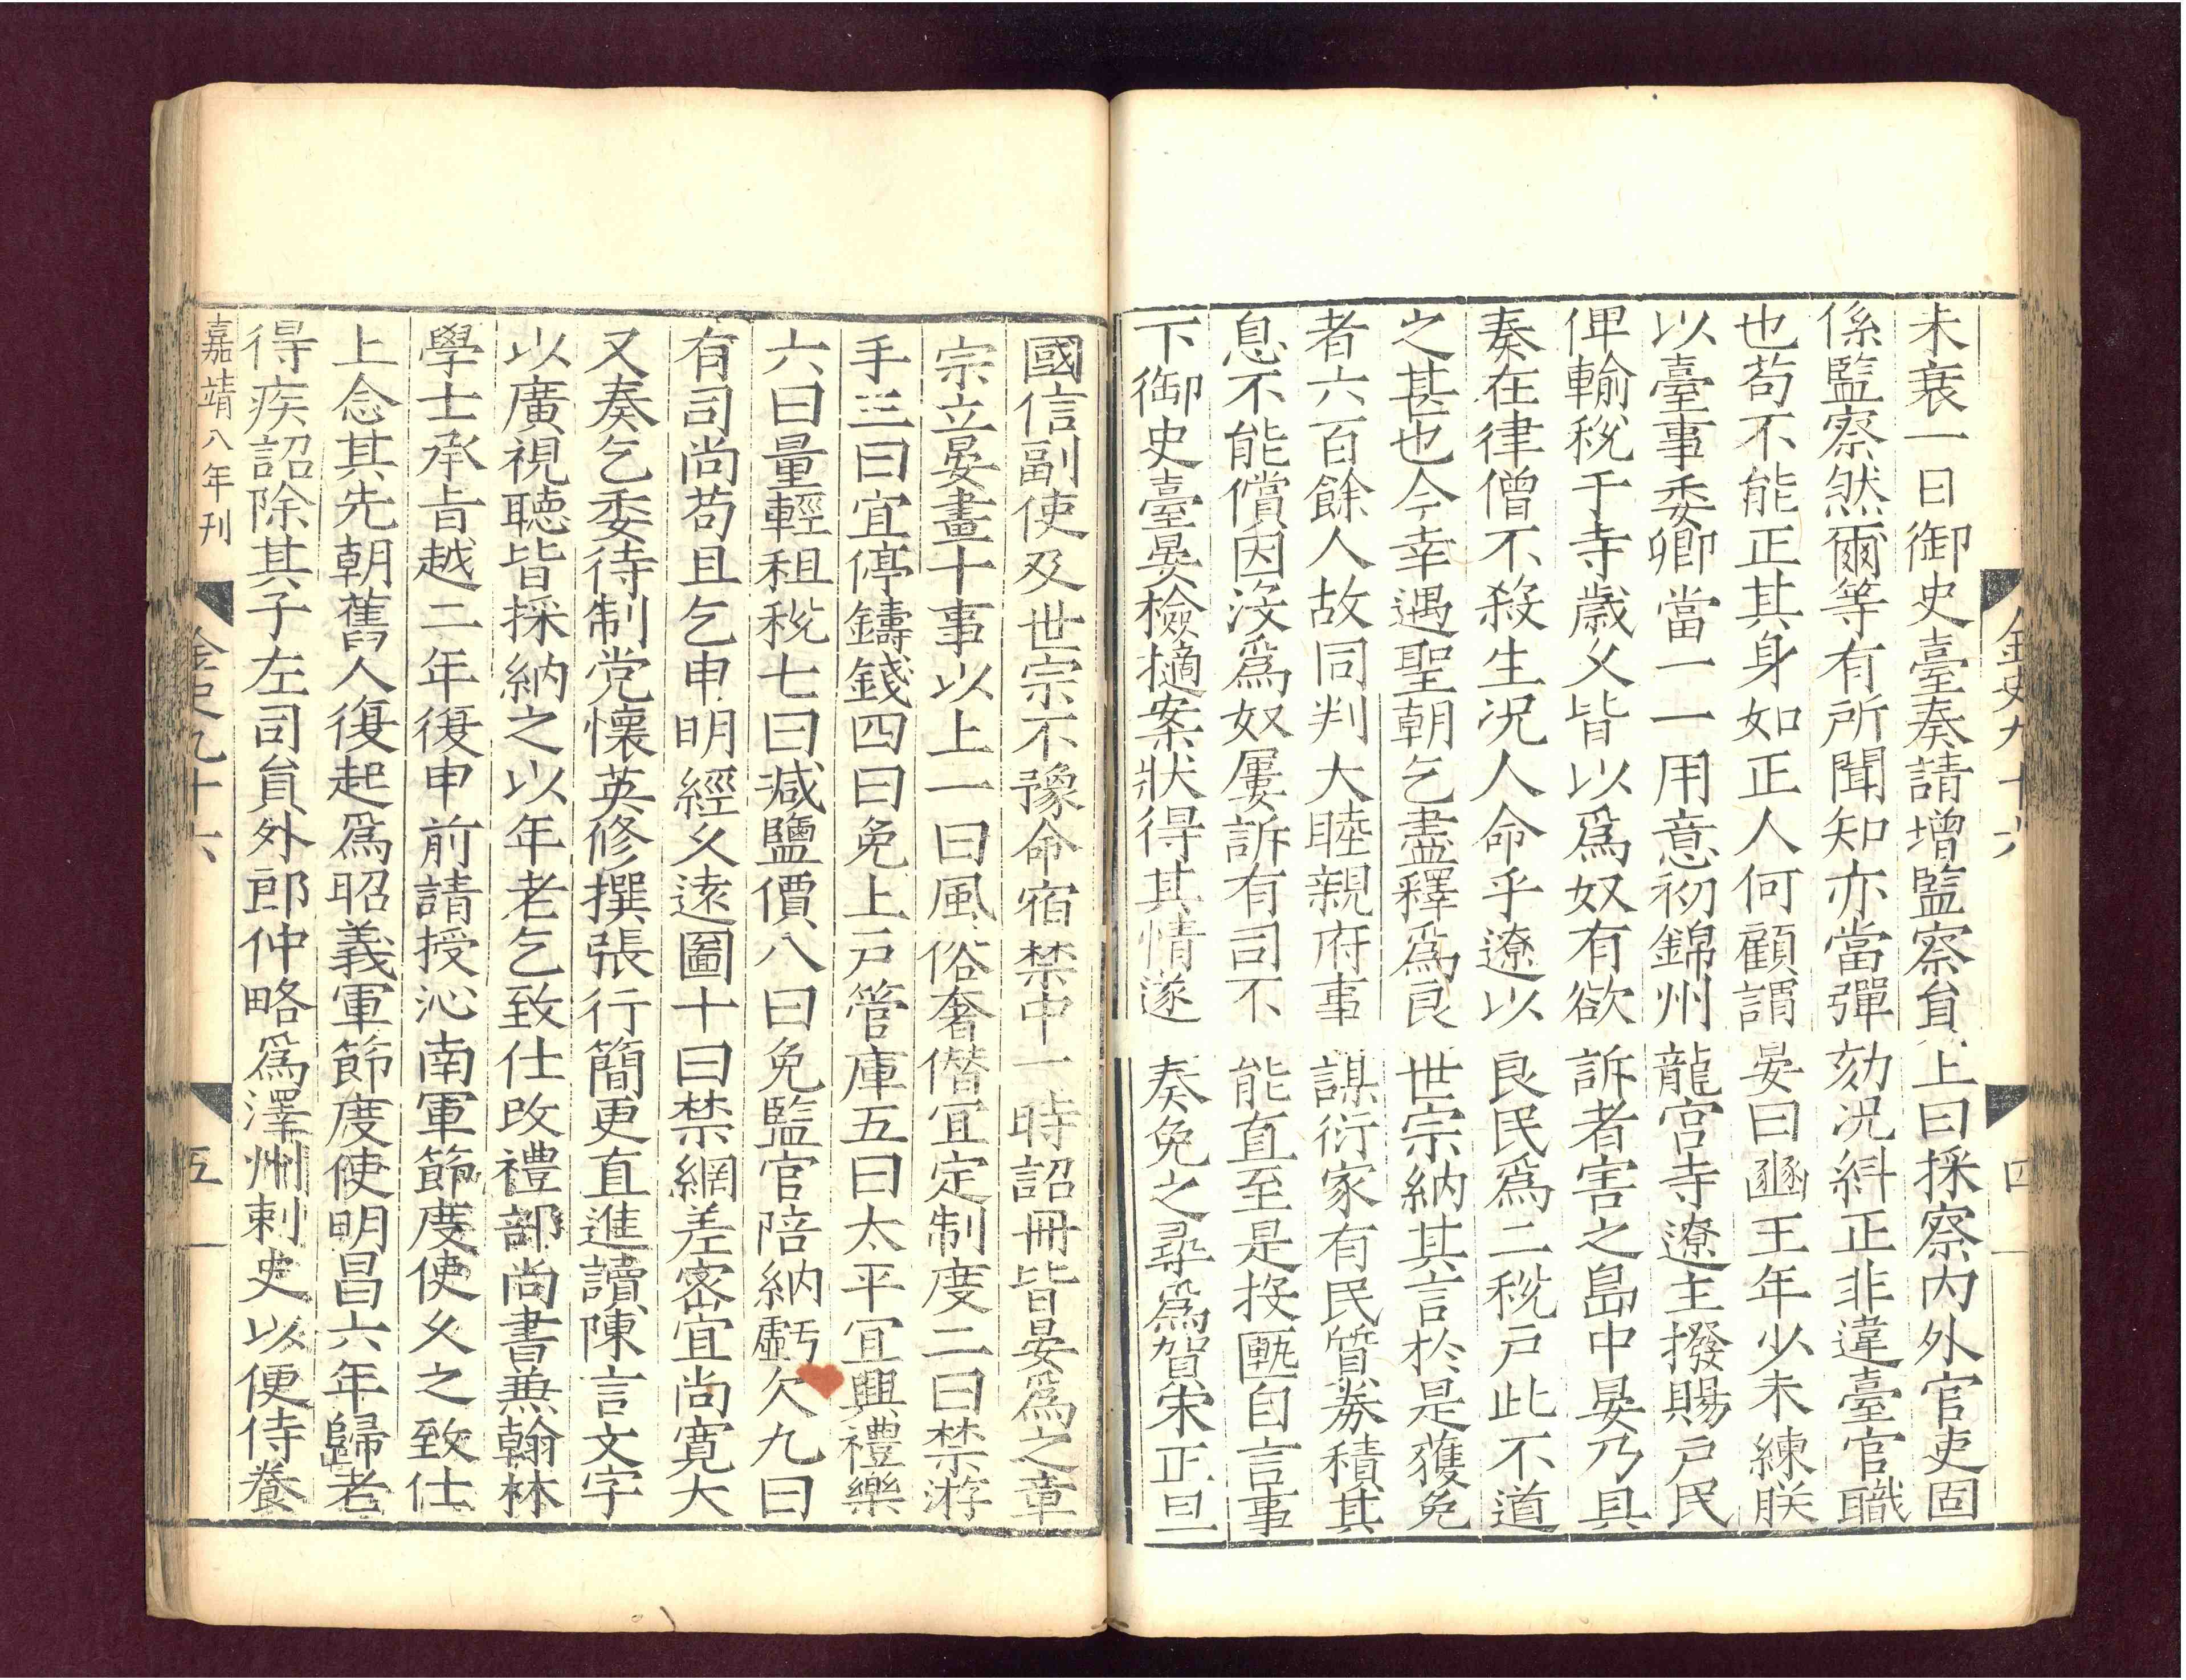 未衰一日御史臺奏請增監察貟上曰採察内外官吏固
係監察然爾等有所聞知亦當彈劾况糾正非違臺官職
也苟不能正其身如正人何顧謂晏曰豳王年少未練朕
以臺事委卿當一一用意初錦州龍宫寺遼主撥賜户民
俾輸税于寺歳久皆以爲奴有欲訴者害之島中晏乃具
奏在律僧不殺生况人命乎遼以良民爲二税户此不道
之甚也今幸遇聖朝乞盡釋爲良世宗納其言於是獲免
者六百餘人故同判大睦親府事謀衍家有民質劵積其
息不能償因沒爲奴屢訴有司不能直至是投匭自言事
下御史臺晏檢擿案狀得其情遂奏免之尋爲賀宋正旦
金史九十六
四
國信副使及世宗不豫命宿禁中一時詔冊皆晏爲之章
宗立晏畫十事以上一曰風俗奢僭宜定制度二曰禁游
手三曰宜停鑄錢四曰免上戸管庫五曰太平宜興禮樂
六曰量輕租税七曰減鹽價八曰免監官陪納虧欠九曰
有司尚苟且乞申明經久遠圖十曰禁網差密宜尚寬大
又奏乞委待制党懷英修撰張行簡更直進讀陳言文字
以廣視聽皆採納之以年老乞致仕改禮部尚書兼翰林
學士承旨越二年復申前請授沁南軍節度使久之致仕
上念其先朝舊人復起爲昭義軍節度使明昌六年歸老
得疾詔除其子左司貟外郎仲略爲澤州刺史以便侍養
嘉靖八年刊
金史九十六
五